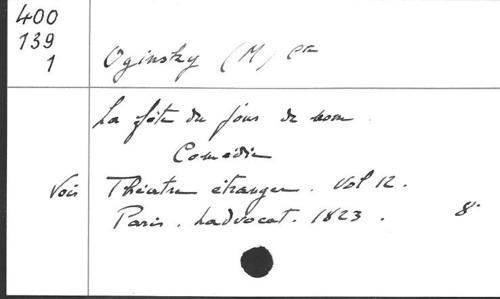 400
139
1
Oginsky (M) Cte
La fête du jour de nom
Comédie
Voir Théatre étranger. Vol 12.
Paris. Ladvocat. 1823. 8°